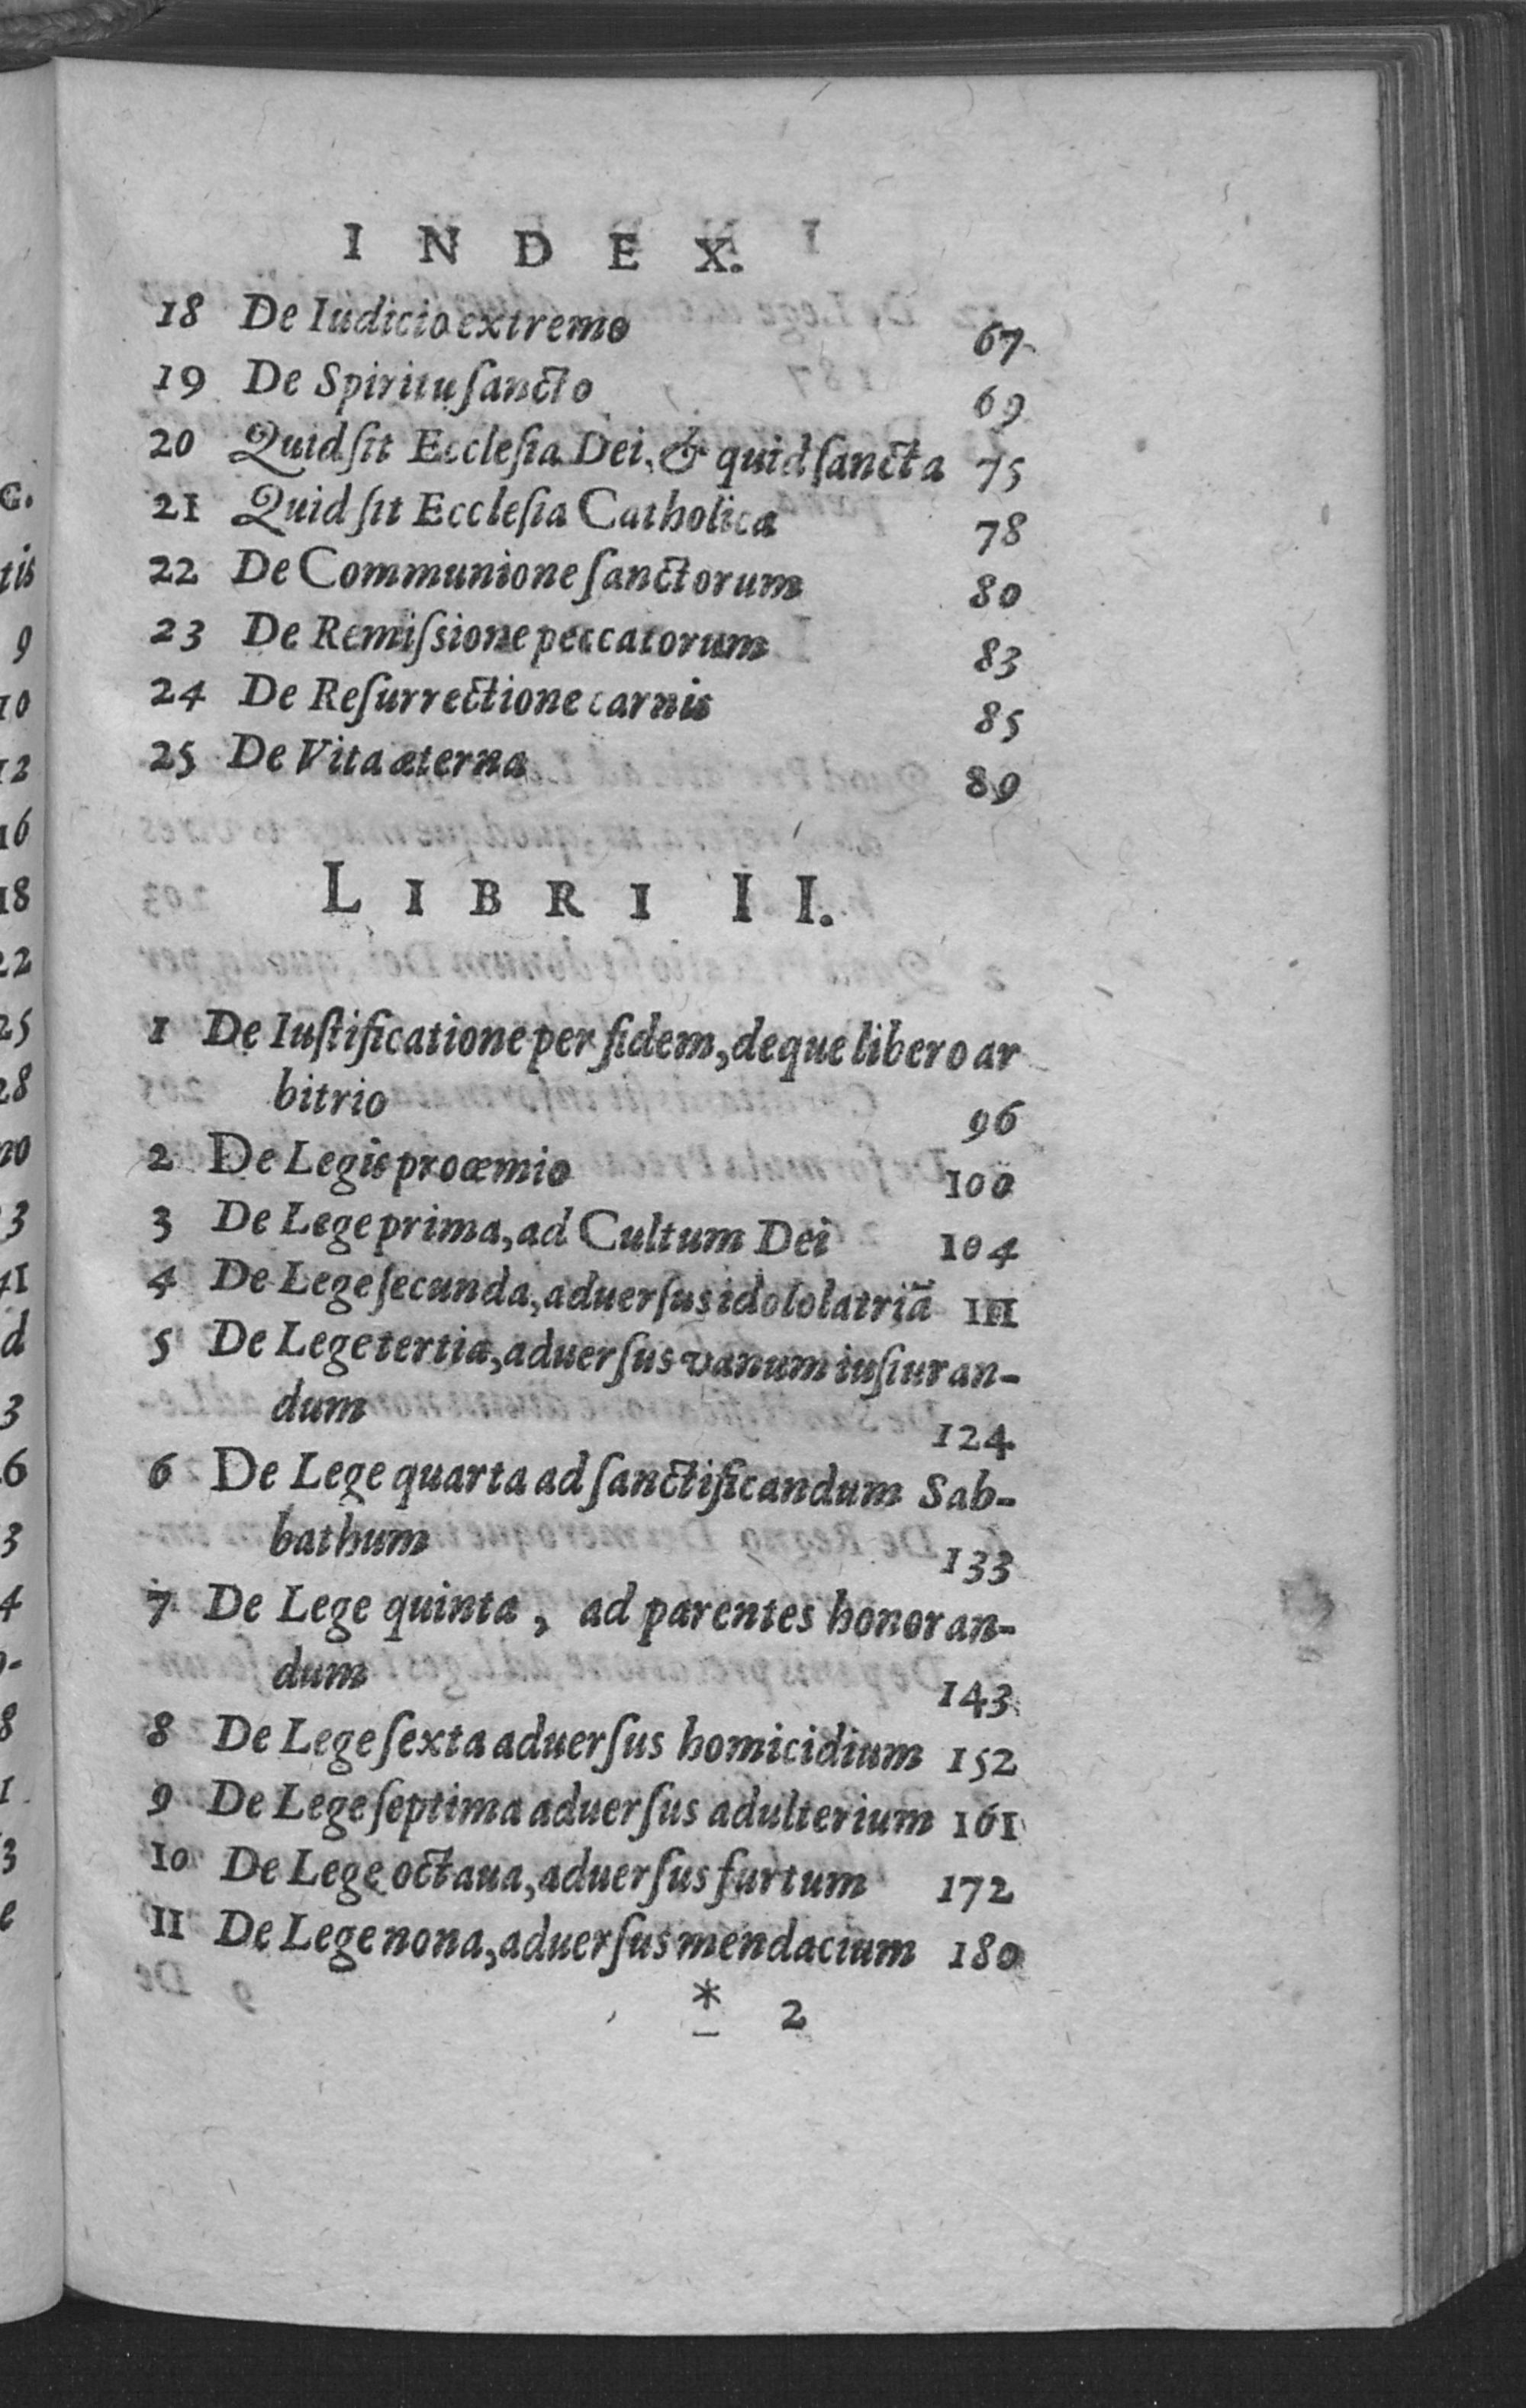 INDEX.
18 De Iudicio extremo 67
19 De Spiritu ſancto 69
20 Quid ſit Eccleſia Dei, & quid ſancta 75
21 Quid ſit Eccleſia Catholica 78
22 De Communione ſanctorum 80
23 De Remiſsione peccatorum 83
24 De Reſurrectione carnis 85
25 De Vita æterna 89
LIBRI II.
1 De Iuſtificatione per fidem, deque libero ar
bitrio 96
2 De Legis proœmio 100
3 De Lege prima, ad Cultum Dei 104
4 De Lege ſecunda, aduerſus idololatriā 111
5 De Lege tertia, aduerſus vanum iuſiuran-
dum 124
6 De Lege quarta ad ſanctificandum Sab-
bathum 133
7 De Lege quinta, ad parentes honoran-
dum 143
8 De Lege ſexta aduerſus homicidium 152
9 De Lege ſeptima aduerſus adulterium 161
10 De Lege octaua, aduerſus furtum 172
11 De Lege nona, aduerſus mendacium 180
* 2